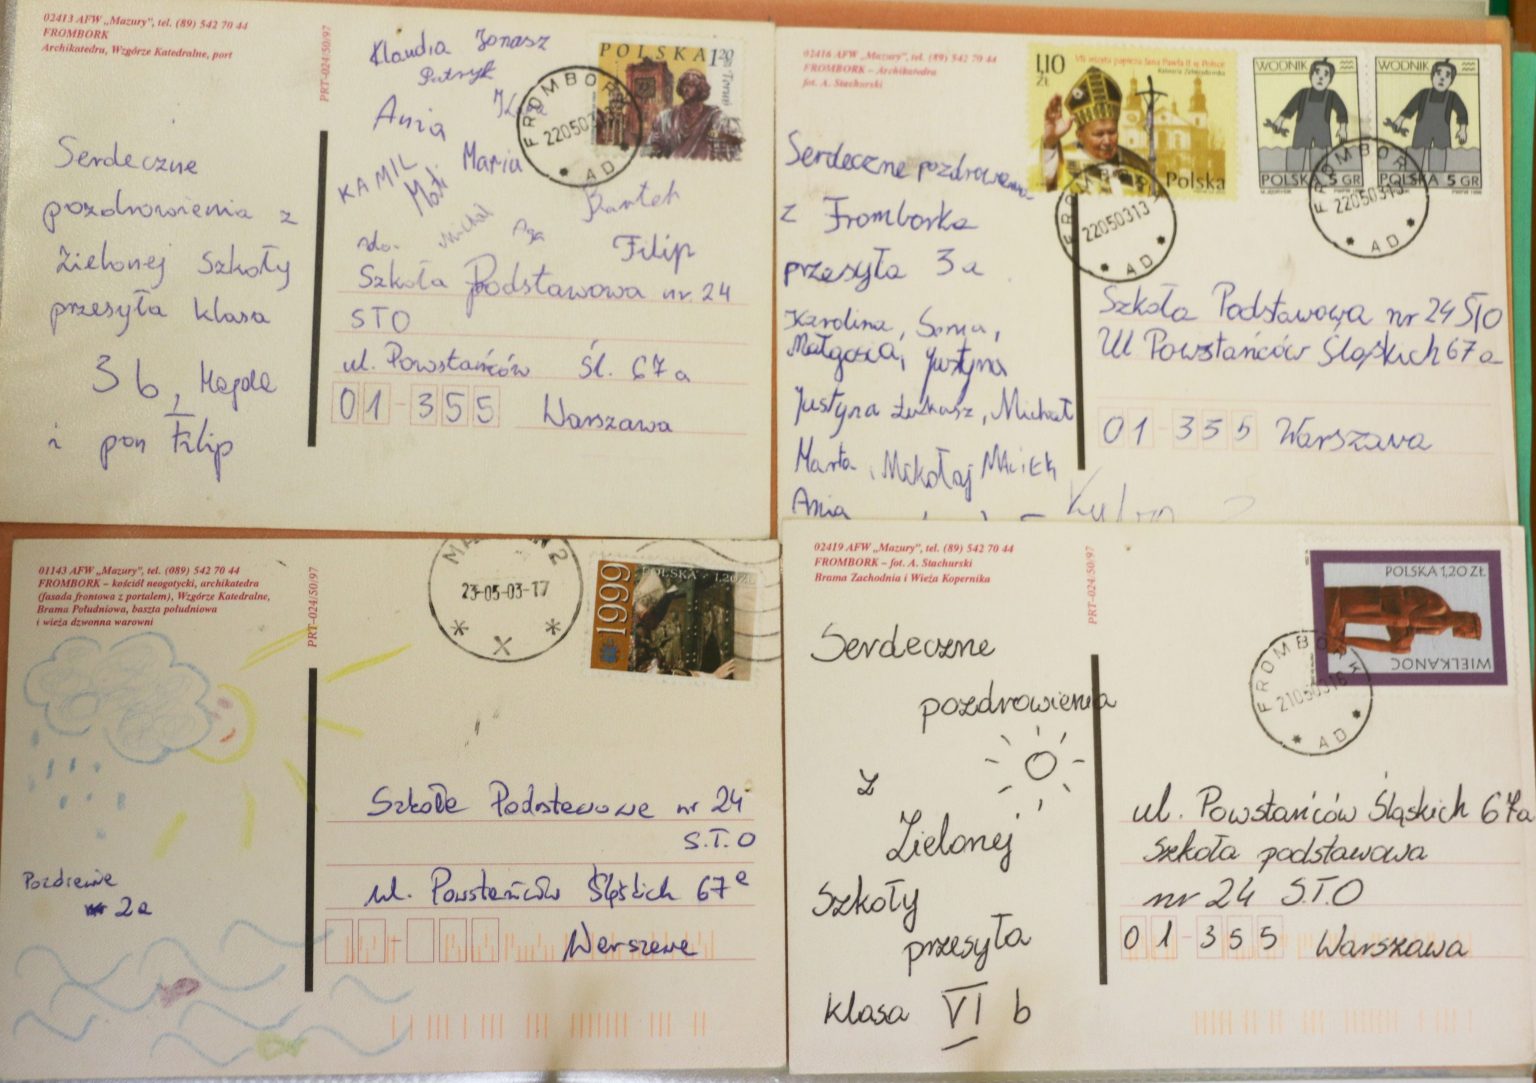 02413 AFW „Mazury", tel. (89) 542 70 44
FROMBORK
Archikatedra, Wzgórze Katedralne, port
PRT-024/50/97
Klaudia Jonasz
Patryk
Ania Kuba
KAMIL Mati Maria
Bartek
Michał Aga Filip
POLSKA 1,20 ZŁ
Toruń
FROMBORK
220503
AD
Serdeczne
pozdrowienia z
Zielonej Szkoły
przesyła klasa
3 b, Magda
i pan Filip
do.
Szkoła Podstawowa nr 24
STO
ul. Powstańców Śl. 67a
01-355 Warszawa
02416 AFW „Mazury", tel. (89) 542 70 44
FROMBORK – Archikatedra
fot. A. Stachurski
1,10 ZŁ
VII wizyta papieża Jana Pawła II w Polsce
Kalwaria Zebrzydowska
Polska
WODNIK
POLSKA 5 GR
WODNIK
POLSKA 5 GR
FROMBORK
22050313
AD
FROMBORK
22050313
AD
Serdeczne pozdrowienia
z Fromborka
przesyła 3a
Karolina, Sonia,
Małgosia, Justyna
Justyna Łukasz, Michał
Marta, Mikołaj Maciek
Ania
Szkoła Podstawowa nr 24 STO
Ul Powstańców Śląskich 67a
01-355 Warszawa
01143 AFW „Mazury", tel. (089) 542 70 44
FROMBORK – kościół neogotycki, archikatedra
(fasada frontowa z portalem), Wzgórze Katedralne,
Brama Południowa, baszta południowa
i wieża dzwonna warowni
PRT-024/50/97
23-05-03-17
1999
POLSKA 1,20 ZŁ
Pozdrawia
2a
Szkoła Podstawowa nr 24
S.T.O
ul. Powstańców Śląskich 67a
Warszawa
02419 AFW „Mazury", tel. (89) 542 70 44
FROMBORK – fot. A. Stachurski
Brama Zachodnia i Wieża Kopernika
PRT-024/50/97
POLSKA 1,20 ZŁ
WIELKANOC
FROMBORK
21050316
AD
Serdeczne
pozdrowienia
z
Zielonej
Szkoły
przesyła
klasa VI b
ul. Powstańców Śląskich 67a
Szkoła podstawowa
nr 24 S.T.O
01-355 Warszawa